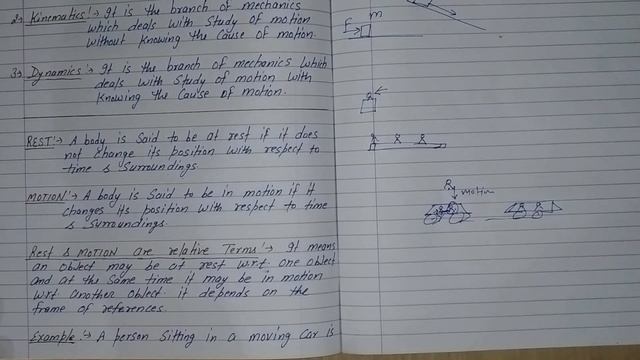 2→ Kinematics:→ It is the branch of mechanics
which deals with study of motion
without knowing the cause of motion.
3→ Dynamics:→ It is the branch of mechanics which
deals with study of motion with
knowing the cause of motion.
REST:→ A body is said to be at rest if it does
not change its position with respect to
time & surroundings.
MOTION:→ A body is said to be in motion if it
changes its position with respect to time
& surroundings.
Rest & MOTION are relative Terms:→ It means
an object may be at rest w.r.t. one object
and at the same time it may be in motion
w.r.t another object. it depends on the
frame of references.
Example:→ A person sitting in a moving car is
F
m
motion